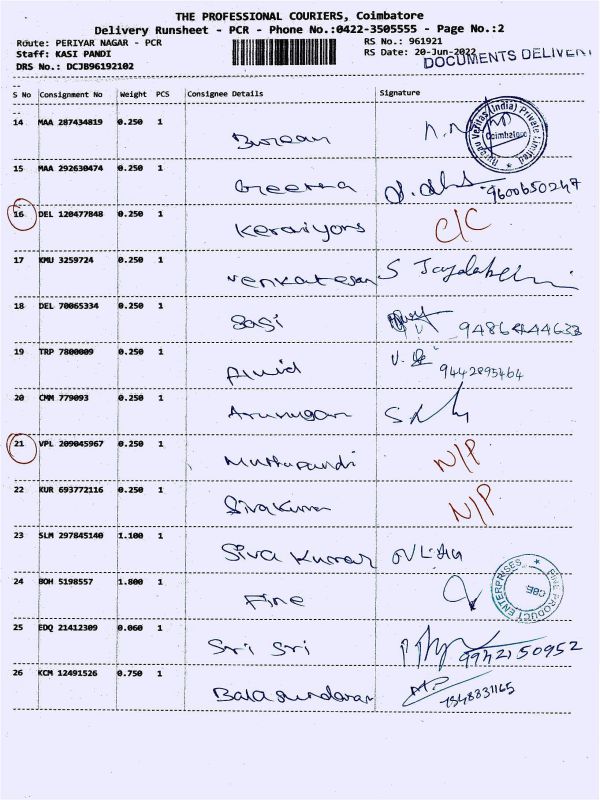 THE PROFESSIONAL COURIERS, Coimbatore
Delivery Runsheet - PCR - Phone No.:0422-3505555 - Page No.:2
Route: PERIYAR NAGAR - PCR RS No.: 961921
Staff: KASI PANDI RS Date: 20-Jun-2022
DRS No.: DCJB96192102 DOCUMENTS DELIVERY
S No Consignment No Weight PCS Consignee Details Signature
14 MAA 287434819 0.250 1 Bureau
Bureau Veritas (India) Private Limited
Coimbatore
15 MAA 292630474 0.250 1 9600650247
16 DEL 120477848 0.250 1 Keraiyors C/C
17 KMU 3259724 0.250 1 Venkatesan
18 DEL 70065334 0.250 1 Sasi
19 TRP 7800009 0.250 1 9442895464
20 CMM 779093 0.250 1 Arumugam
21 VPL 209045967 0.250 1 Muthupandi N/P
22 KUR 693772116 0.250 1 Sivakumar N/P
23 SLM 297845140 1.100 1 Siva Kumar
24 BOH 5198557 1.800 1 Fine
FINE PRODUCT ENTERPRISES
CBE
25 EDQ 21412309 0.060 1 Sri Sri 9942150952
26 KCM 12491526 0.750 1 Balasundaram